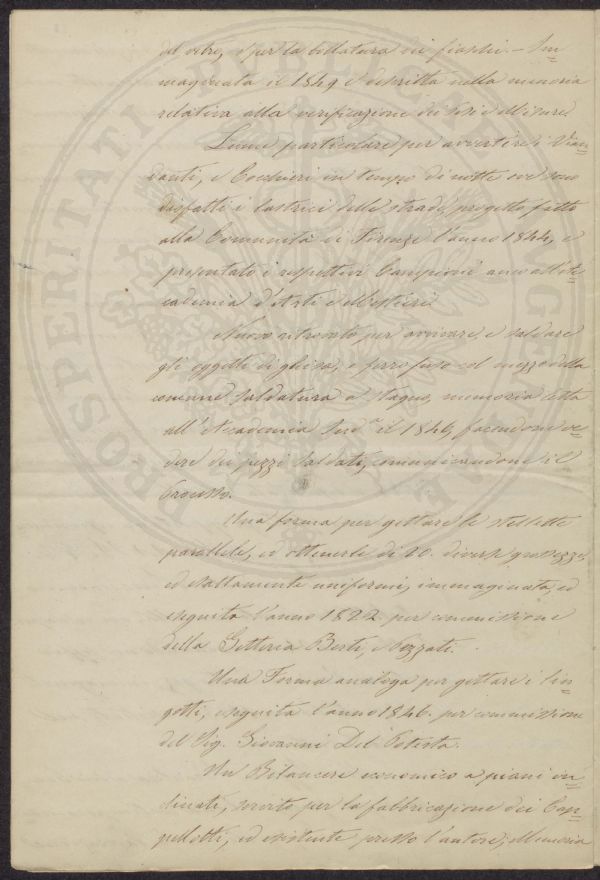 del vetro, e per la bollatura dei fiaschi. – Im=
maginata il 1849 e descritta nella memoria
relativa alla verificazione dei Pesi e Misure.
Lume particolare per avvertire i Vian=
danti, e Cocchieri in tempo di notte ove sono
disfatti i lastrici delle strade, progetto fatto
alla Comunità di Firenze l'anno 1844, e
presentato i respettivi Campioni anco all'Ac=
cademia d'Arti e Mestieri.
Nuovo ritrovato per avvivare e saldare
gli oggetti di ghisa, o ferro fuso col mezzo della
comune saldatura a stagno, memoria letta
all'Accademia sud.a il 1846, facendone ve=
dere dei pezzi saldati, comunicandone il
Processo.
Una forma per gettare le stellette
parallele, ed ottenerle di 20. diverse grossezze,
ed esattamente uniformi, immaginata, ed
eseguita l'anno 1822. per commissione
della Getteria Berti, e Pozzati.
Una Forma analoga per gettare i lin=
gotti, eseguita l'anno 1846. per commissione
del Sig. Giovanni Del
Un Bilancere economico a piani in=
clinati, servito per la fabbricazione dei Cap=
pellotti, ed esistente presso l'autore; Memoria
PROSPERITATI PUBLICAE